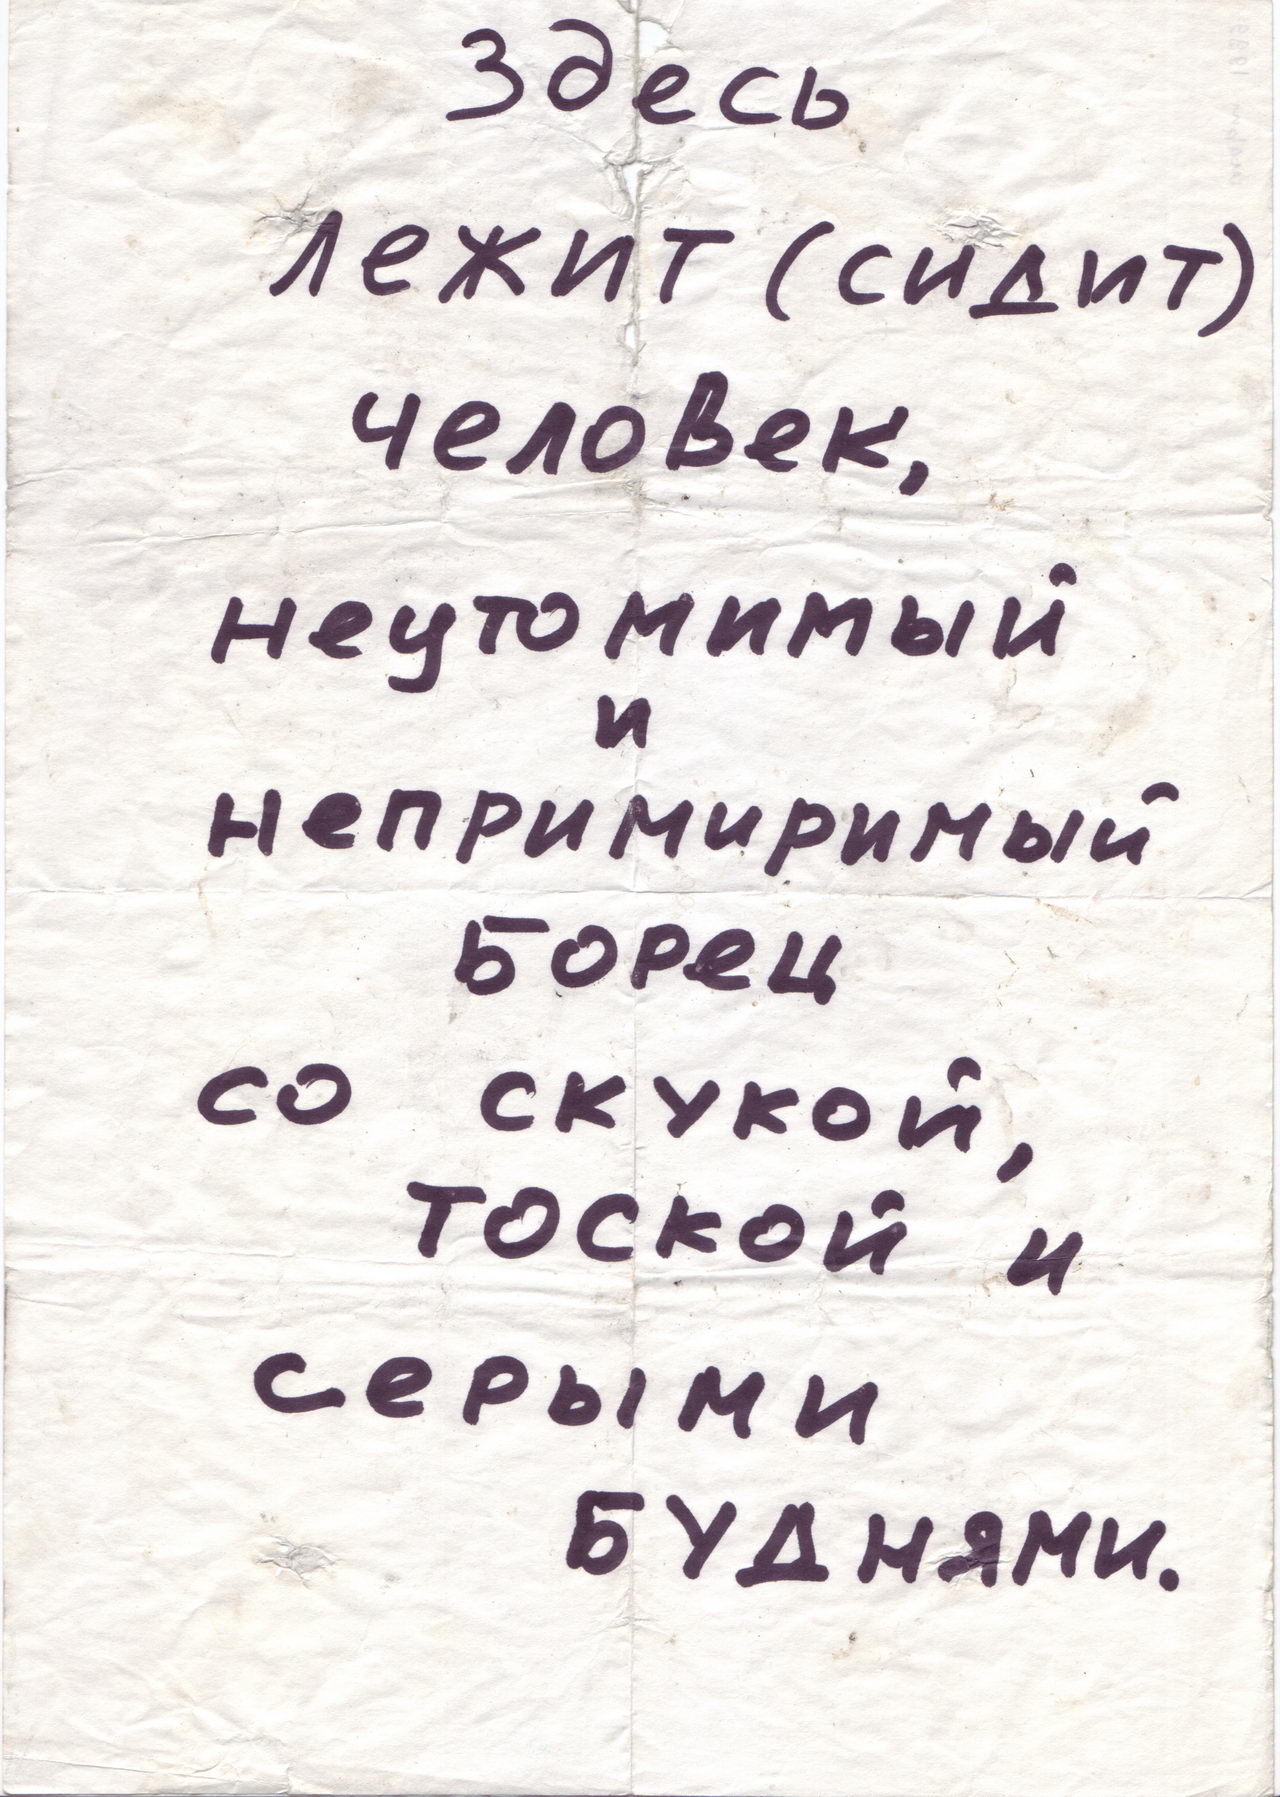 Здесь
лежит (сидит)
человек,
неутомимый
и
непримиримый
Борец
со скукой,
тоской и
серыми
БУДНЯМИ.